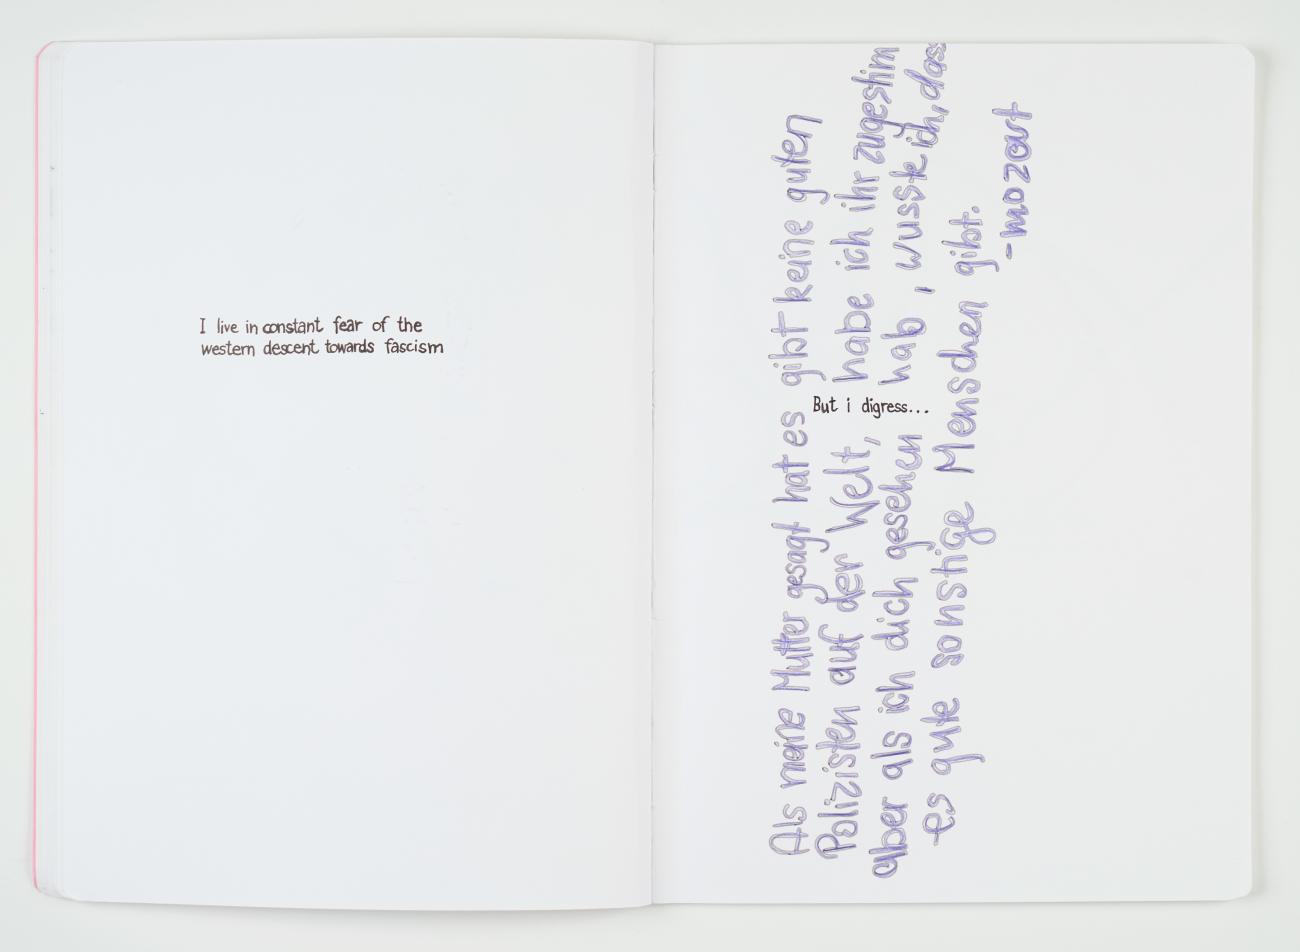 I live in constant fear of the
western descent towards fascism
Als meine Mutter gesagt hat es gibt keine guten
Polizisten auf der Welt, habe ich ihr zugestim
aber als ich dich gesehen hab, wusste ich, dass
es gute sonstige Menschen gibt.
-mozart
But i digress...